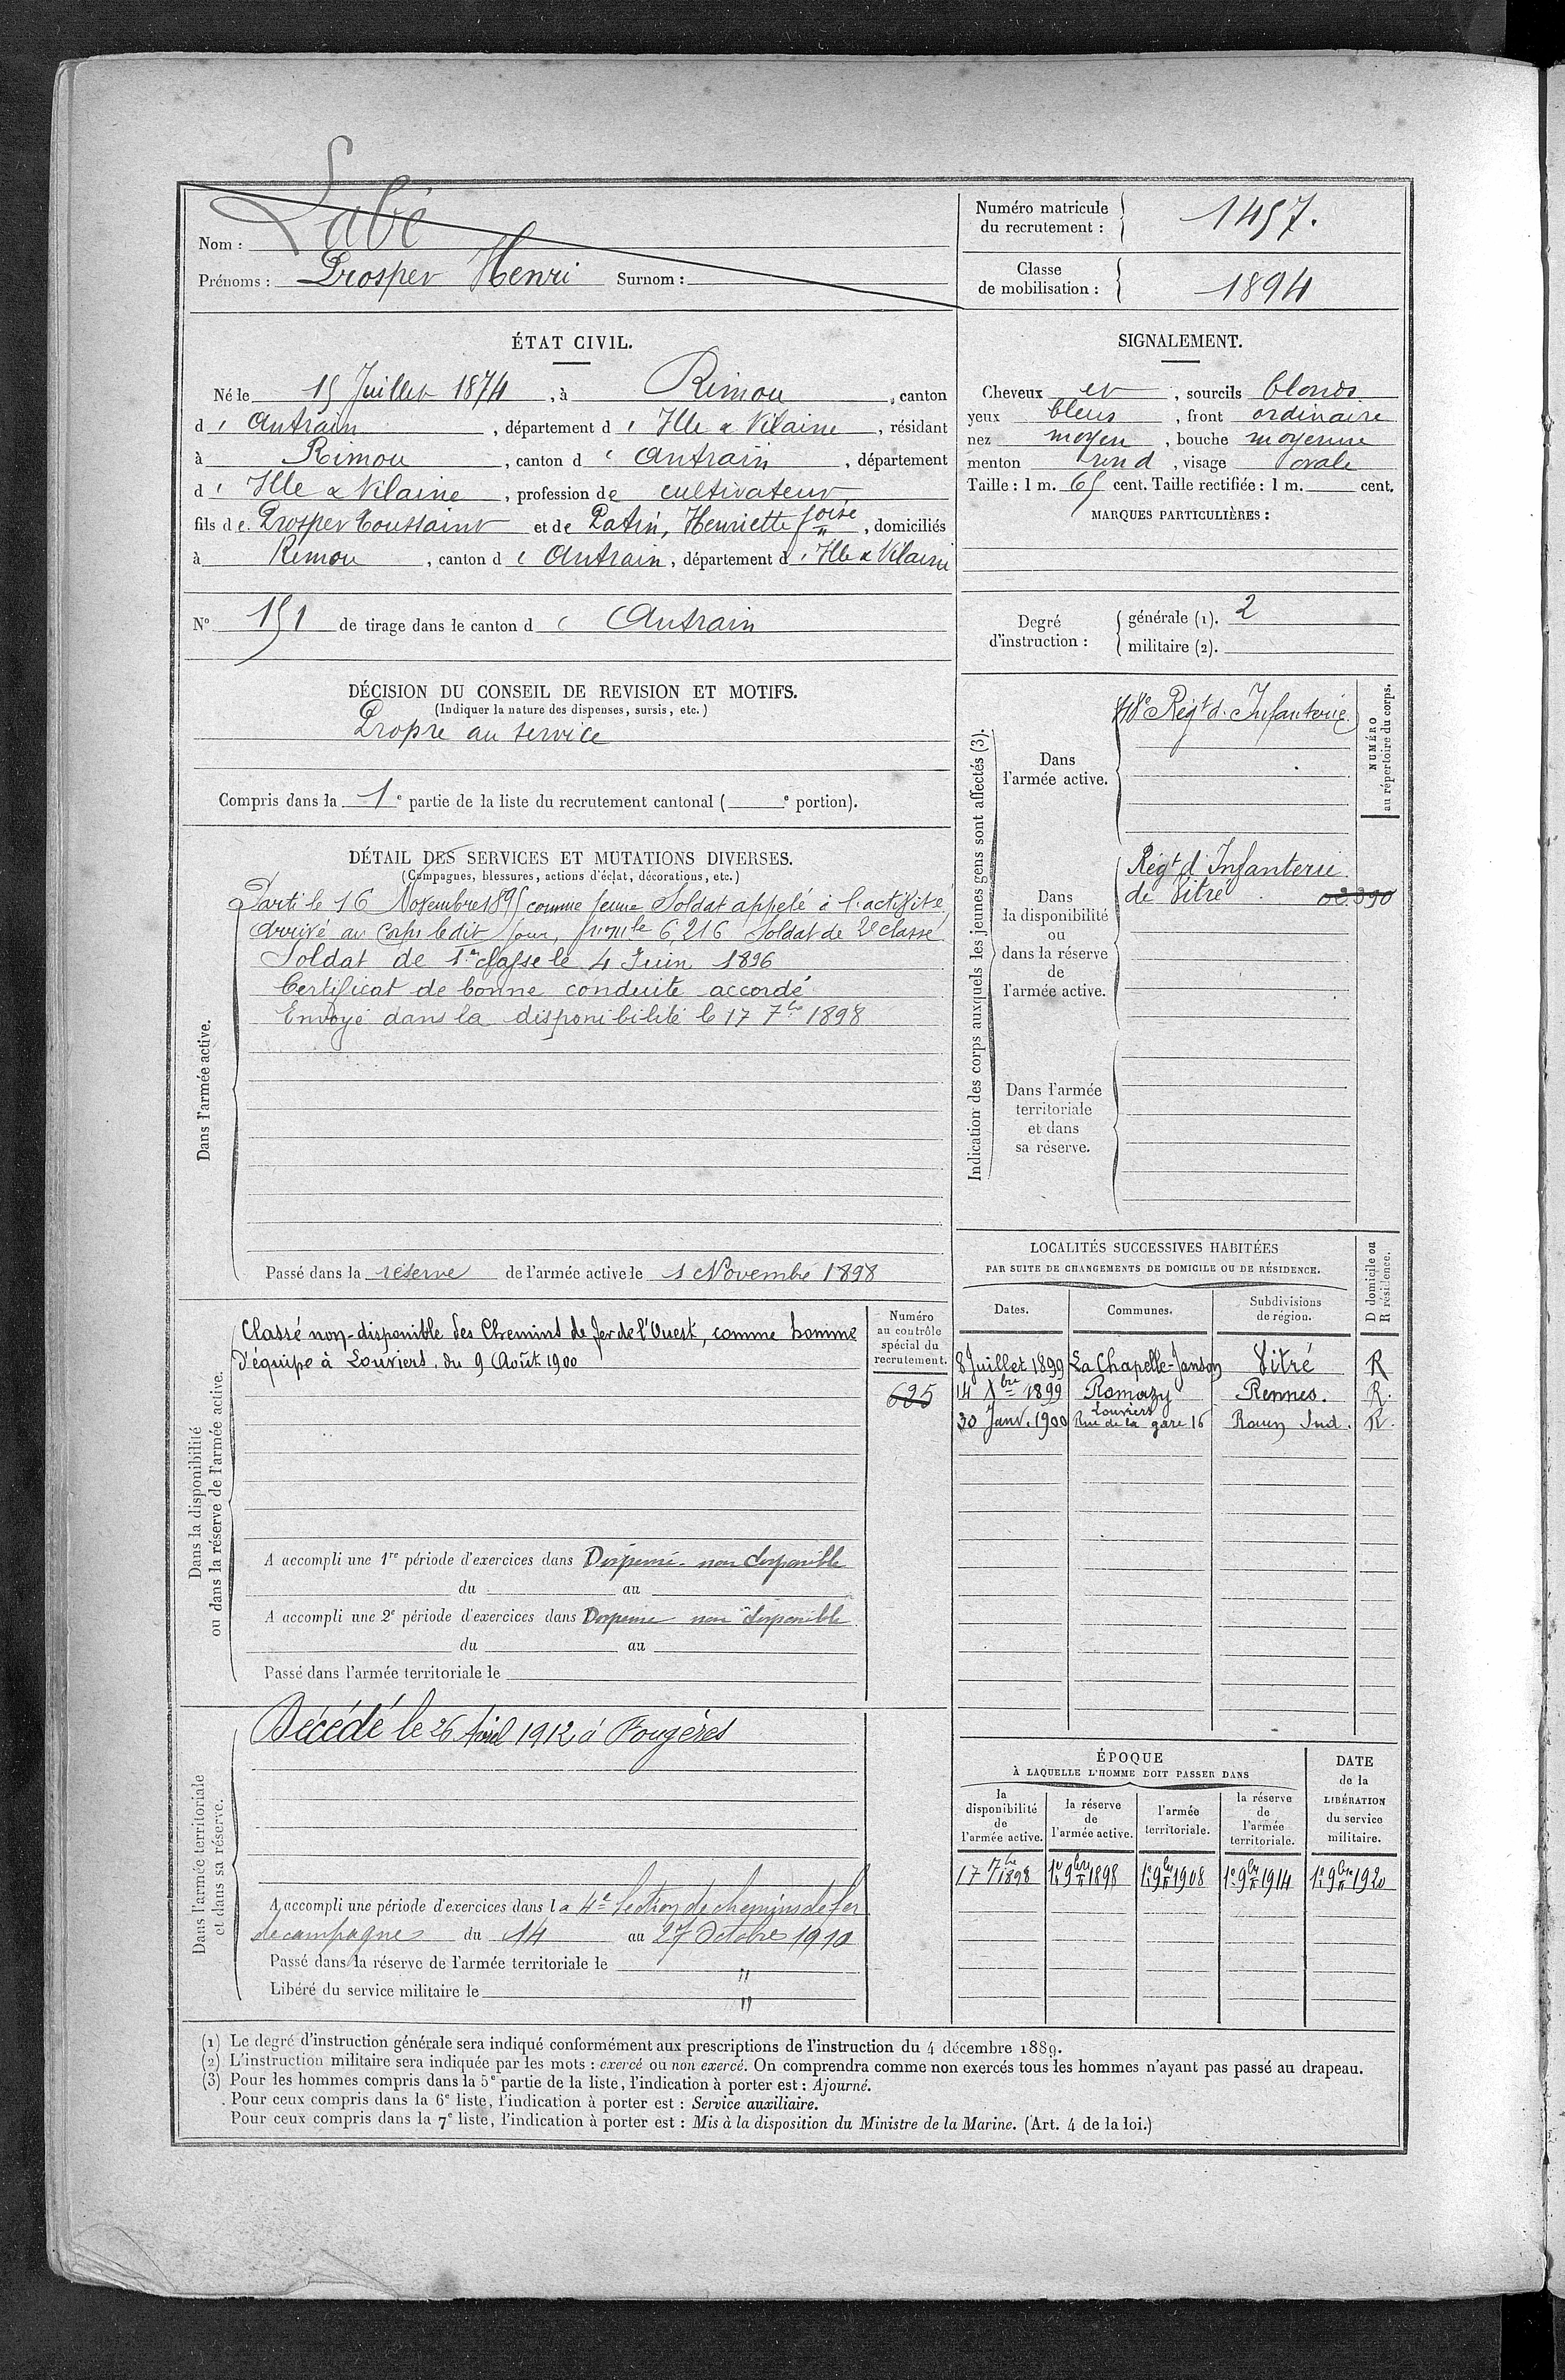 Labé
Nom :
Prénoms : Prosper Henri Surnom :
Numéro matricule du recrutement : 1457.
Classe de mobilisation : 1894
ÉTAT CIVIL.
Né le 15 Juillet 1874, à Rimou, canton
d' Antrain, département d' Ille & Vilaine, résidant
à Rimou, canton d' Antrain, département
d' Ille & Vilaine, profession de cultivateur
fils de Prosper Toussaint et de Patin, Henriette foise, domiciliés
à Rimou, canton d' Antrain, département d' Ille & Vilaine
N° 151 de tirage dans le canton d' Antrain
SIGNALEMENT.
Cheveux et, sourcils blonds
yeux bleus, front ordinaire
nez moyen, bouche moyenne
menton rond, visage ovale
Taille : 1 m. 65 cent. Taille rectifiée : 1 m. cent.
MARQUES PARTICULIÈRES :
Degré d'instruction :
générale (1). 2
militaire (2).
DÉCISION DU CONSEIL DE REVISION ET MOTIFS.
(Indiquer la nature des dispenses, sursis, etc.)
Propre au service
Compris dans la 1e partie de la liste du recrutement cantonal ( e portion).
DÉTAIL DES SERVICES ET MUTATIONS DIVERSES.
(Campagnes, blessures, actions d'éclat, décorations, etc.)
Dans l'armée active.
Parti le 16 Novembre 1895 comme jeune Soldat appelé à l'activité,
Arrivé au Corps le dit jour, no mle 6,216 Soldat de 2e classe.
Soldat de 1re classe le 4 Juin 1896
Certificat de bonne conduite accordé
Envoyé dans la disponibilité le 17 7bre 1898
Passé dans la réserve de l'armée active le 1 Novembre 1898
Indication des corps auxquels les jeunes gens sont affectés (3).
NUMÉRO au répertoire du corps.
Dans l'armée active.
Régt d'Infanterie
Dans la disponibilité ou dans la réserve de l'armée active.
Régt d'Infanterie
de Vitré 02390
Dans l'armée territoriale et dans sa réserve.
Dans la disponibilité ou dans la réserve de l'armée active.
Classé non-disponible des Chemins de fer de l'Ouest, comme homme
d'équipe à Louviers, du 9 Août 1900
Numéro au contrôle spécial du recrutement.
625
A accompli une 1re période d'exercices dans Dispensé - non disponible
du au
A accompli une 2e période d'exercices dans Dispensé non disponible
du au
Passé dans l'armée territoriale le
LOCALITÉS SUCCESSIVES HABITÉES
PAR SUITE DE CHANGEMENTS DE DOMICILE OU DE RÉSIDENCE.
D domicile ou R résidence.
Dates. Communes. Subdivisions de région.
8 Juillet 1899 La Chapelle-Janson Vitré R
14 Xbre 1899 Romazy Rennes. R.
30 Janv. 1900 Louviers Rue de la gare 16 Rouen Sud. R.
Dans l'armée territoriale et dans sa réserve.
Décédé le 26 Avril 1912 à Fougères
A accompli une période d'exercices dans la 4e Section de chemins de fer
de campagne du 14 au 27 Octobre 1910
Passé dans la réserve de l'armée territoriale le "
Libéré du service militaire le "
ÉPOQUE
À LAQUELLE L'HOMME DOIT PASSER DANS
la disponibilité de l'armée active.
la réserve de l'armée active.
l'armée territoriale.
la réserve de l'armée territoriale.
DATE de la LIBÉRATION du service militaire.
17 7bre 1898 1er 9bre 1898 1er 9bre 1908 1er 9bre 1914 1er 9bre 1920
(1) Le degré d'instruction générale sera indiqué conformément aux prescriptions de l'instruction du 4 décembre 1889.
(2) L'instruction militaire sera indiquée par les mots : exercé ou non exercé. On comprendra comme non exercés tous les hommes n'ayant pas passé au drapeau.
(3) Pour les hommes compris dans la 5e partie de la liste, l'indication à porter est : Ajourné.
Pour ceux compris dans la 6e liste, l'indication à porter est : Service auxiliaire.
Pour ceux compris dans la 7e liste, l'indication à porter est : Mis à la disposition du Ministre de la Marine. (Art. 4 de la loi.)